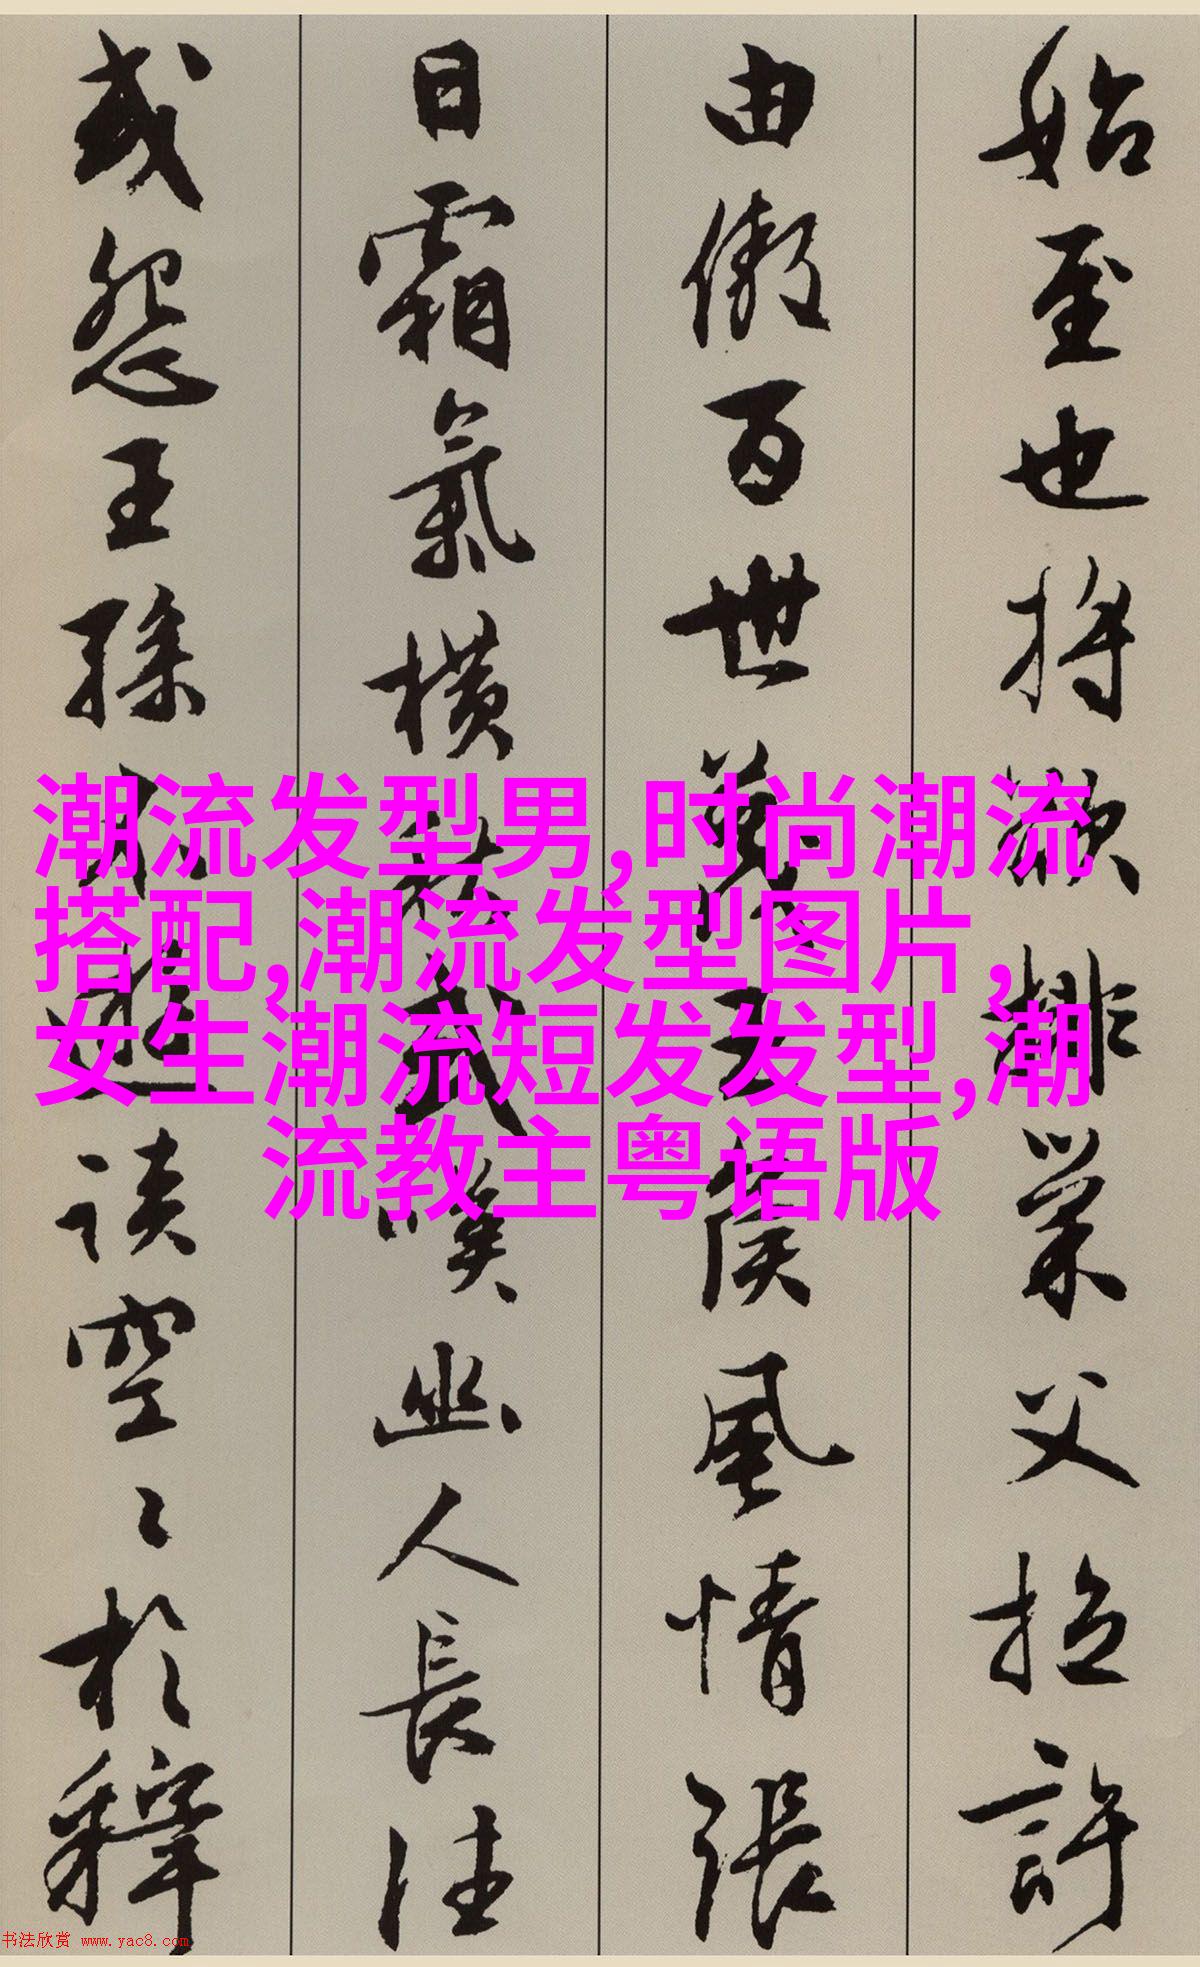 始至也將欲排巢父拉許
由傲百世蔑王侯風情張
日霜氣橫秋或嘆幽人長往
或怨王孫不遊談空〻於釋
潮流发型男,时尚潮流
搭配,潮流发型图片,
女生潮流短发发型,潮
流教主粤语版
书法欣赏 www.yac8.com